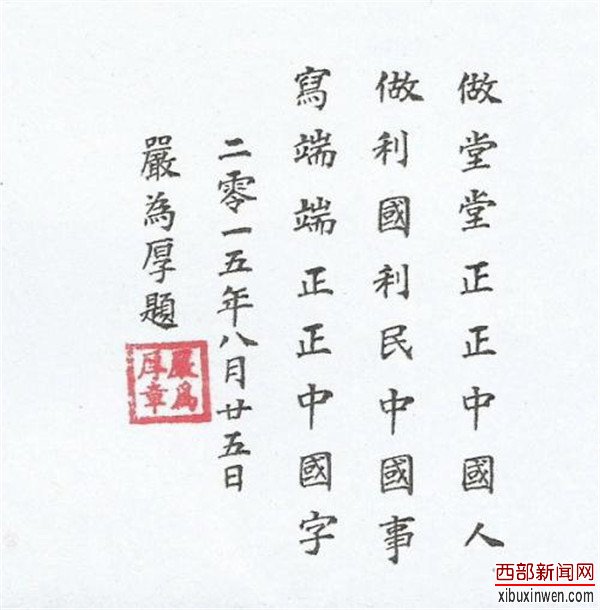 做堂堂正正中國人
做利國利民中國事
寫端端正正中國字
二零一五年八月廿五日
嚴為厚題
嚴為
厚章
西部新闻网
xibuxinwen.com